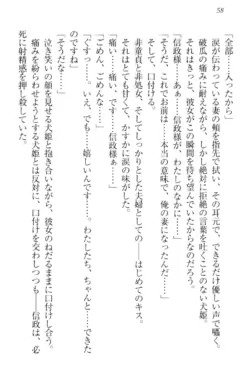 58
「全部……入ったから」
涙が伝っている妻の頬を指先で拭い、その耳元で優しい声で囁く。
破瓜の痛みに耐えながら、しかし絶対に拒絶の言葉を吐くことのない犬姫。
それはきっと、彼女がこの瞬間を待ち望んでいたからなのだろう。
「信政様が、わたしのなかに……」
「そうだ、これでお前は……本当の意味で、俺の妻になった」
そして、口付ける。
非童貞と非処女、そしてしっかりとした夫婦としての――はじめてのキス。
それは、かすかに涙の味がした。
「痛い……痛いです、信政様ぁ……」
「ごめん、ごめんな」
「くすっ……でも……嬉しいんです……わたしたち、ちゃんと……できた」
「そうだな……」
泣き笑いの顔を見せる犬姫と抱き合いながら、彼女のねだるままに口付けし合う。
痛みを紛らわせようとする犬姫とは反対に、口付けを交わしつつも――信政は、必
死に射精感を押し殺していた。